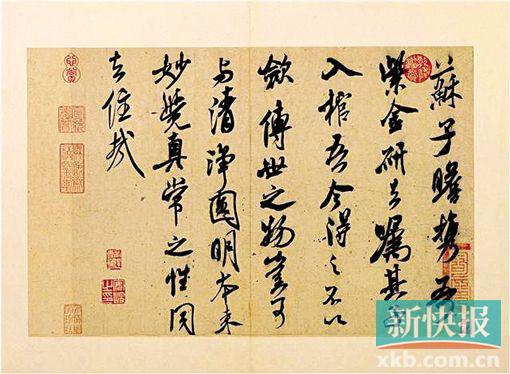 蘇子瞻攜吾
紫金研去囑其子
入棺吾今得之不以
斂傳世之物豈可
与清淨圓明本来
妙覺真常之性同
去住哉
新快报
xkb.com.cn